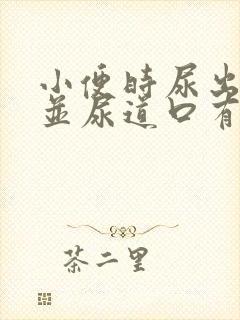 小便时尿出
並尿道口有
茶二里